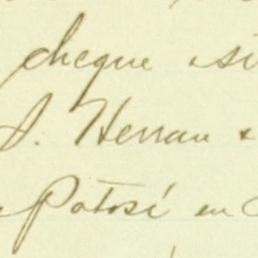 cheque si
S. Herran &
Potosí en